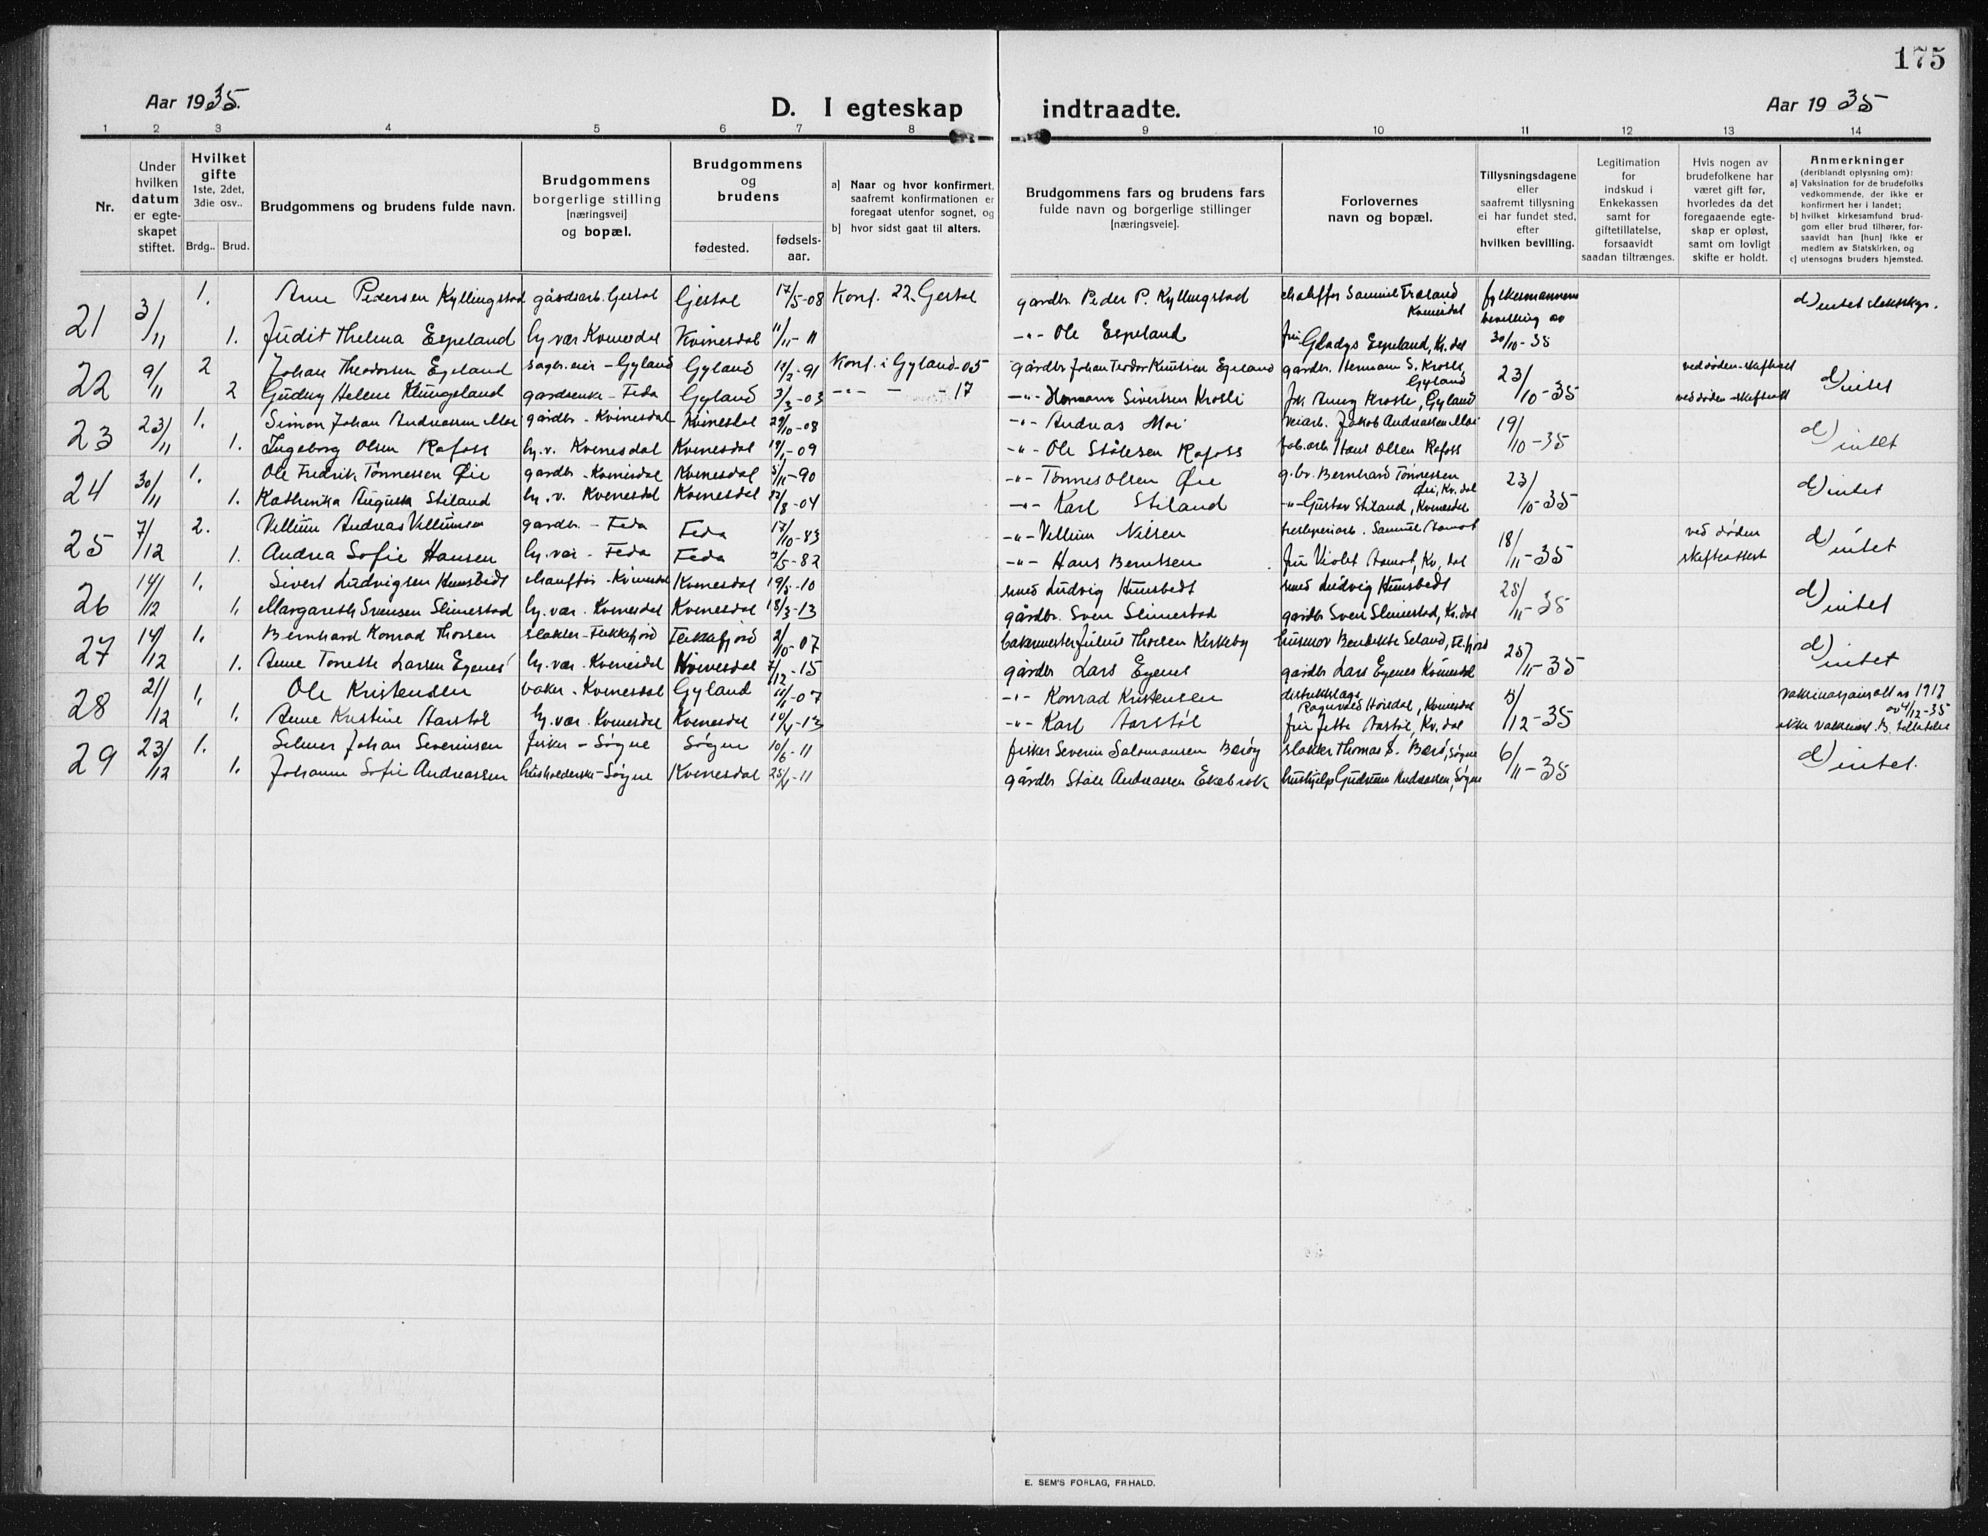 175
Aar 1935.
D. I egteskap indtraadte.
Aar 1935
1 2 3 4 5 6 7 8 9 10 11 12 13 14
Nr.
Under hvilken datum er egte-skapet stiftet.
Hvilket gifte 1ste, 2det, 3die osv..
Brdg.. Brud.
Brudgommens og brudens fulde navn.
Brudgommens borgerlige stilling [næringsvei] og bopæl.
Brudgommens og brudens
fødested. fødsels-aar.
a) Naar og hvor konfirmert, saafremt konfirmationen er foregaat utenfor sognet, og
b) hvor sidst gaat til alters.
Brudgommens fars og brudens fars fulde navn og borgerlige stillinger [næringsveie].
Forlovernes navn og bopæl.
Tillysningsdagene eller saafremt tillysning ei har fundet sted, efter hvilken bevilling.
Legitimation for indskud i Enkekassen samt for giftetillatelse, forsaavidt saadan tiltrænges.
Hvis nogen av brudefolkene har været gift før, hvorledes da det foregaaende egte-skap er opløst, samt om lovligt skifte er holdt.
Anmerkninger (deriblandt oplysning om):
a) Vaksination for de brudefolks vedkommende, der ikke er konfirmert her i landet;
b) hvilket kirkesamfund brud-gom eller brud tilhører, for-saavidt han [hun] ikke er medlem av Statskirken, og
c) utensogns bruders hjemsted.
21 3/11 1. Arne Pedersen Kyllingstad gårdsarb. Gjestal Gjestal 17/5-08 Konf. 22. Gjestal gårdbr. Peder P. Kyllingstad Samuel Træland Kvinesdal fylkesmannens bevilling av 30/10-35 d) intet
1. Judit Thelma Espeland hj.vær Kvinesdal Kvinesdal 11/11-11 -"- Ole Espeland frk Gladys Espeland, Kv.dal
22 9/11 2 Johan Theodorsen Egeland sagbr.eier - Gyland Gyland 12/2-91 Konf. i Gyland-05 gårdbr Johan Teodor Knutsen Egeland gårdbr. Hermann S. Krosli, Gyland 23/10-35 ved døden - skifteatt d) intet
2 Gudny Helene Klungeland gårdsenke - Feda Gyland 3/3-03 -"- - -17 -"- Hermann Sivertsen Krosli frk Anny Krosli, Gyland ved døden - skifteatt
23 23/11 1. Simon Johan Andreassen Moi gårdbr - Kvinesdal Kvinesdal 29/10-08 -"- Andreas Moi veiarb. Jakob Andreassen Moi 19/10-35 d) intet
1. Ingeborg Olsen Rafoss hj.v. Kvinesdal Kvinesdal -09 -"- Ole Stålesen Rafoss fab.arb Hans Olsen Rafoss
24 30/11 1. Ole Fredrik Tønnessen Øie gårdbr - Kvinesdal Kvinesdal 5/11-90 -"- Tønnes Olsen Øie g.br. Bernhard Tønnessen Øie, Kv.dal 23/10-35 d) intet
1. Kathinka Augusta Stiland hj.v. Kvinesdal Kvinesdal -04 -"- Karl Stiland -"- Gustav Stiland, Kvinesdal
25 7/12 2. Villum Andreas Villumsen gårdbr - Feda Feda 17/10-83 -"- Villum Nilsen Samuel Aamot 18/11-35 ved døden skifteattest d) intet
1. Andrea Sofie Hansen hj.vær - Feda Feda 3/5-82 -"- Hans Berntsen fru Violet Aamot, Kv.dal
26 14/12 1. Sivert Ludvigsen Hunsbedt - Kvinesdal Kvinesdal -10 smed Ludvig Hunsbedt smed Ludvig Hunsbedt 25/11-35 d) intet
1. Margareth Svensen Slimestad hj.vær. Kvinesdal Kvinesdal 18/3-13 gårdbr. Sven Slimestad gårdbr Sven Slimestad, Kv.dal
27 14/12 1. Bernhard Konrad Thorsen slakter - Flekkefjord Flekkefjord 2/10-07 bakermester Julius Thorsen Kirkeby husmor Bendikte Seland, Fl.fjord 25/11-35 d) intet
1. Anne Tonette Larsen Egenes hj.vær. Kvinesdal Kvinesdal 7/12-15 gårdbr Lars Egenes gårdbr Lars Egenes Kvinesdal
28 21/12 1. Ole Kristensen baker - Kvinesdal Gyland 11/1-07 -"- Konrad Kristensen Ragnvald Hørsdal, Kvinesdal 5/12-35 vaksinasjonsatt av 1917 av 4/12-35
1. Anne Kristine Aarstøl hj.vær. Kvinesdal Kvinesdal -13 -"- Karl Aarstøl fru Jette Aarstøl, Kv.dal ikke vaksinert.
29 23/12 1. Selmer Johan Severinsen fisker - Søgne Søgne 10/6-11 fisker Severin Salomonsen Borøy slakter Thomas S. Borø, Søgne 6/11-35 d) intet.
1. Johanne Sofie Andreassen husholderske - Søgne Kvinesdal 25/4-11 gårdbr Ståle Andreassen Ekebrokk hushjelp Gudrun Andreassen, Søgne
E. SEM'S FORLAG, FR.HALD.